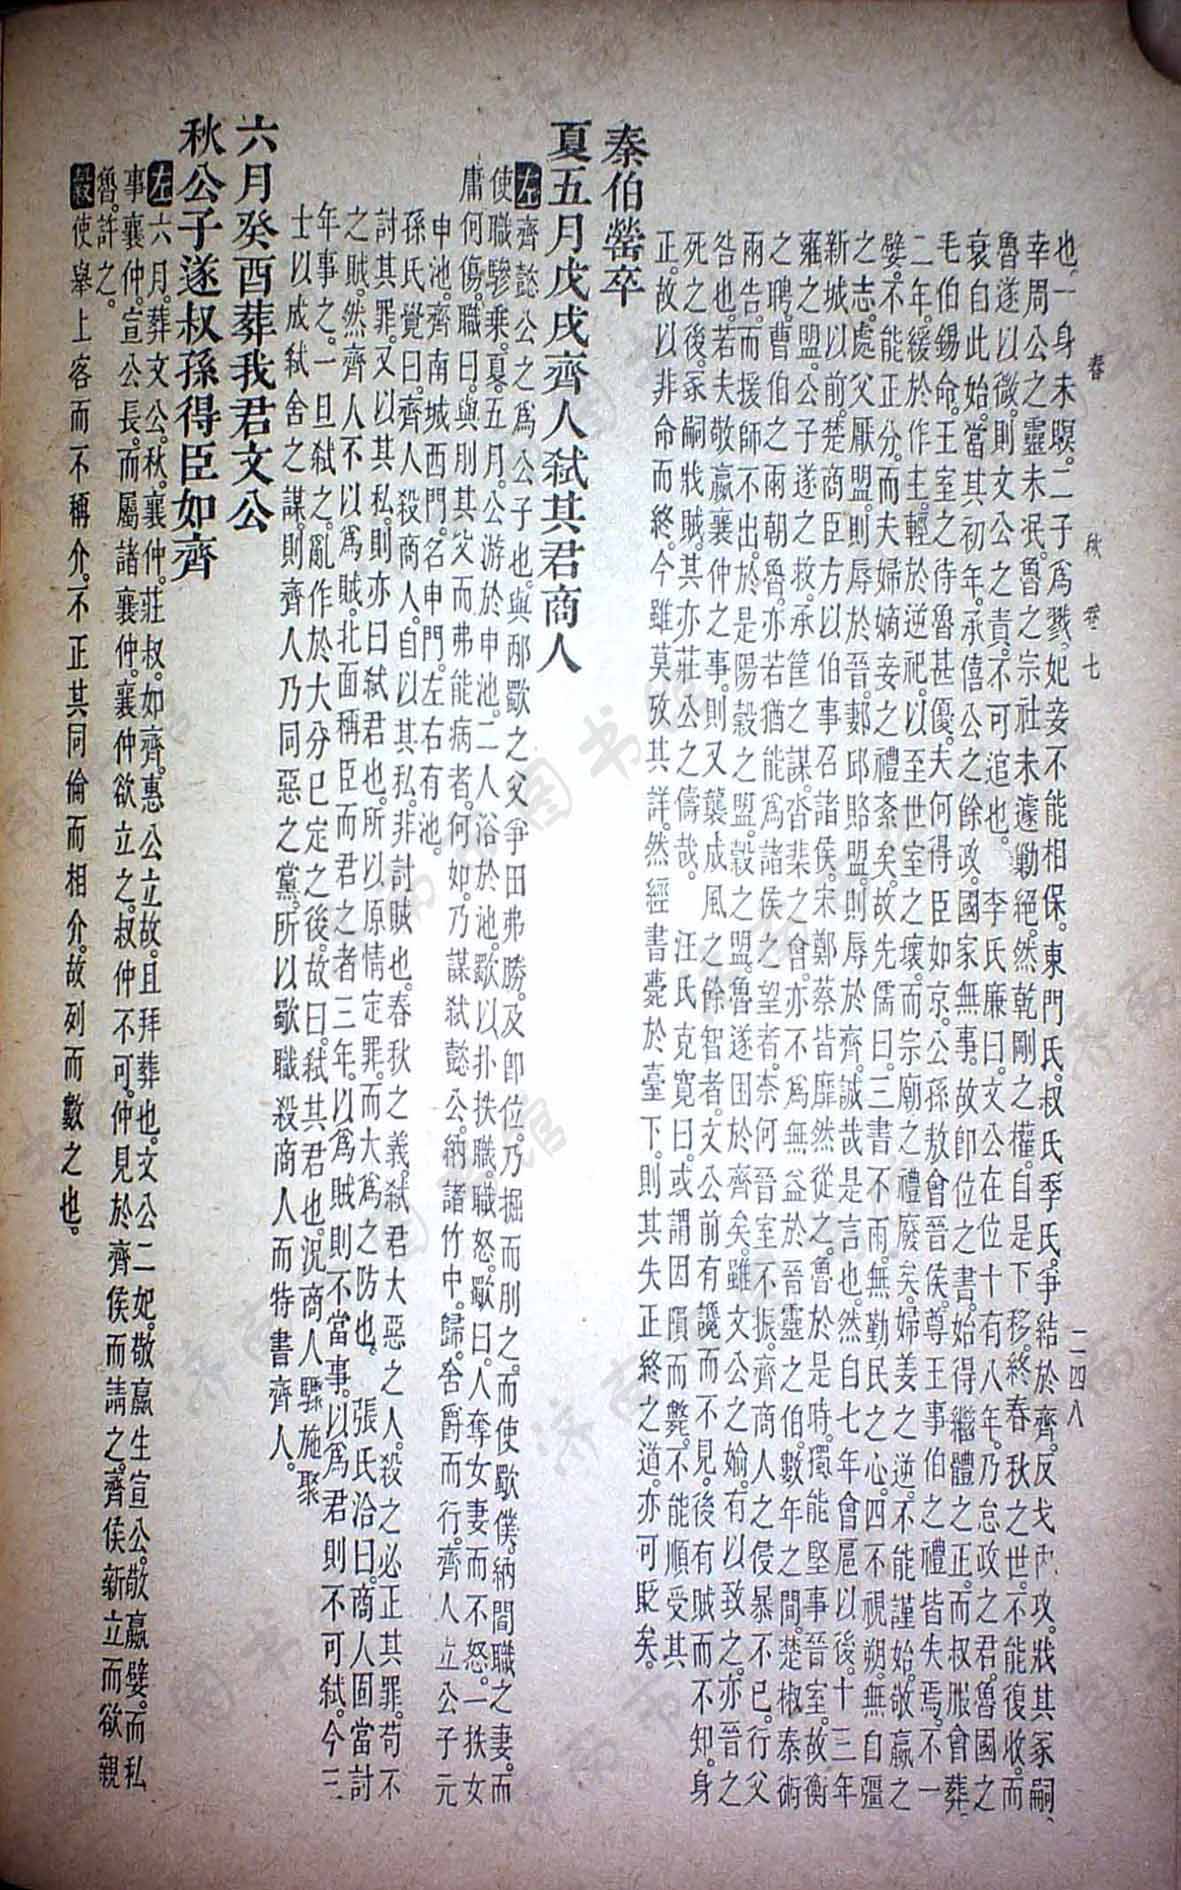 春 秋 卷七 二四八
也一身未暝二子爲戮妃妾不能相保東門氏叔氏季氏爭結於齊反戈內攻戕其冢嗣
幸周公之靈未泯魯之宗社未遽勦絕然乾剛之權自是下移終春秋之世不能復收而
魯遂以微則文公之責不可逭也。李氏廉曰文公在位十有八年乃怠政之君魯國之
衰自此始當其初年承僖公之餘政國家無事故卽位之書始得繼體之正而叔服會葬
毛伯錫命王室之待魯甚優夫何得臣如京公孫敖會晉侯尊王事伯之禮皆失焉不一
二年緩於作主輕於逆祀以至世室之壞而宗廟之禮廢矣婦姜之逆不能謹始敬嬴之
嬖不能正分而夫婦嫡妾之禮紊矣故先儒曰三書不雨無勤民之心四不視朔無自彊
之志處父厭盟則辱於晉郪邱賂盟則辱於齊誠哉是言也然自七年會扈以後十三年
新城以前楚商臣方以伯事召諸侯宋鄭蔡皆靡然從之魯於是時獨能堅事晉室故衡
雍之盟公子遂之救承筐之謀沓棐之會亦不爲無益於晉靈之伯數年之間楚椒秦術
之聘曹伯之兩朝魯亦若猶能爲諸侯之望者柰何晉室不振齊商人之侵暴不已行父
兩告而援師不出於是陽穀之盟穀之盟魯遂困於齊矣雖文公之婾有以致之亦晉之
咎也若夫敬嬴襄仲之事則又襲成風之餘智者文公前有讒而不見後有賊而不知身
死之後冢嗣戕賊其亦莊公之儔哉。汪氏克寬曰或謂因隕而斃不能順受其
正故以非命而終今雖莫攷其詳然經書薨於臺下則其失正終之道亦可貶矣。
秦伯罃卒
夏五月戊戌齊人弒其君商人
左齊懿公之爲公子也與邴歜之父爭田弗勝及卽位乃掘而刖之而使歜僕納閻職之妻而
使職驂乘夏五月公游於申池二人浴於池歜以扑抶職職怒歜曰人奪女妻而不怒一抶女
庸何傷職曰與刖其父而弗能病者何如乃謀弒懿公納諸竹中歸舍爵而行齊人立公子元
申池齊南城西門名申門左右有池
孫氏覺曰齊人殺商人自以其私非討賊也春秋之義弒君大惡之人殺之必正其罪苟不
討其罪又以其私則亦曰弒君也所以原情定罪而大爲之防也。張氏洽曰商人固當討
之賊然齊人不以爲賊北面稱臣而君之者三年以爲賊則不當事以爲君則不可弒今三
年事之一旦弒之亂作於大分已定之後故曰弒其君也況商人驟施聚
士以成弒舍之謀則齊人乃同惡之黨所以歜職殺商人而特書齊人。
六月癸酉葬我君文公
秋公子遂叔孫得臣如齊
左六月葬文公秋襄仲莊叔如齊惠公立故且拜葬也文公二妃敬嬴生宣公敬嬴嬖而私
事襄仲宣公長而屬諸襄仲襄仲欲立之叔仲不可仲見於齊侯而請之齊侯新立而欲親
魯許之。
穀使舉上客而不稱介不正其同倫而相介故列而數之也。